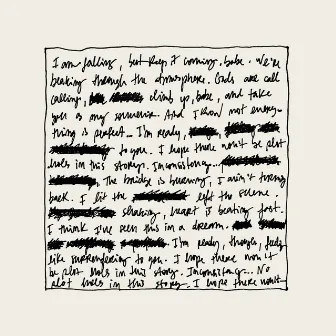 I am falling, but keep it coming, babe. We're
beating through the atmosphere. Gods are call
calling, climb up, babe, and take
you as my souvenir. And I know not every-
thing is perfect. I'm ready,
to you. I hope there won't be plot
holes in this story. Inconsistency...
The bridge is burning, I ain't turning
back. I lit the left the scene.
shaking, heart is beating fast.
I think I've seen this in a dream.
I'm ready, though, feels
like surrendering to you. I hope there won't
be plot holes in this story. Inconsistency... No
plot holes in this story. I hope there won't